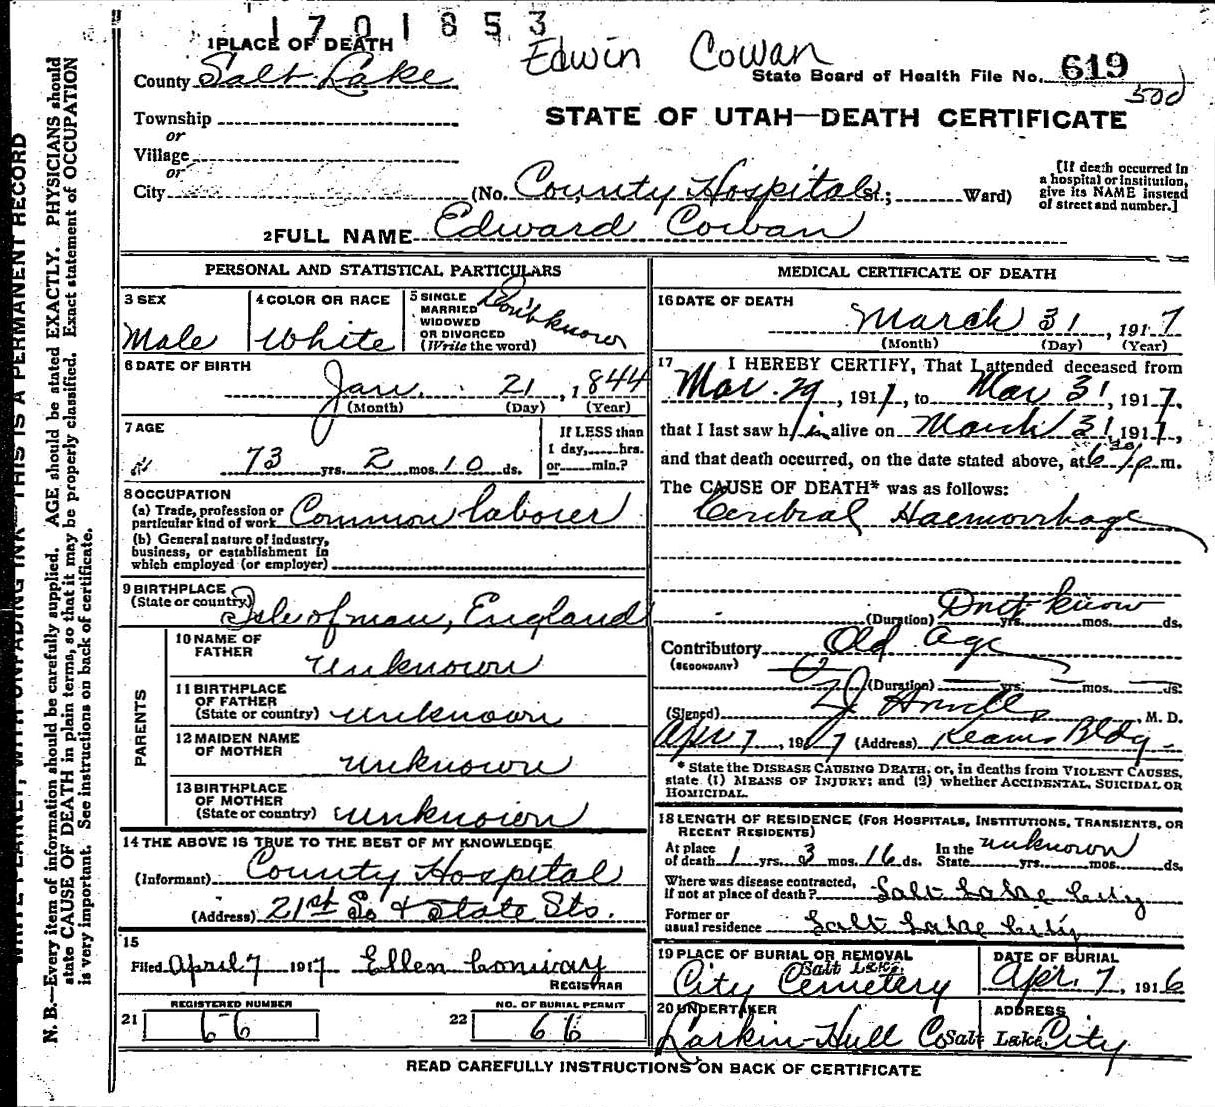 1701853
Edwin Cowan
1 PLACE OF DEATH
County Salt Lake
State Board of Health File No. 619
500
Township
or
Village
or
City
STATE OF UTAH—DEATH CERTIFICATE
(No. County Hospital St.; Ward)
[If death occurred in
a hospital or institution,
give its NAME instead
of street and number.]
2 FULL NAME Edward Cowan
PERSONAL AND STATISTICAL PARTICULARS
3 SEX
Male
4 COLOR OR RACE
White
5 SINGLE
MARRIED
WIDOWED
OR DIVORCED
(Write the word)
Don't know
6 DATE OF BIRTH
Jan. 21, 1844
(Month) (Day) (Year)
7 AGE
73 yrs. 2 mos. 10 ds.
If LESS than
1 day, hrs.
or min.?
8 OCCUPATION
(a) Trade, profession or
particular kind of work Common laborer
(b) General nature of industry,
business, or establishment in
which employed (or employer)
9 BIRTHPLACE
(State or country) Isle of man, England
PARENTS
10 NAME OF
FATHER
unknown
11 BIRTHPLACE
OF FATHER
(State or country) unknown
12 MAIDEN NAME
OF MOTHER
unknown
13 BIRTHPLACE
OF MOTHER
(State or country) unknown
14 THE ABOVE IS TRUE TO THE BEST OF MY KNOWLEDGE
(Informant) County Hospital
(Address) 21st So & State Sts.
15
Filed April 7 1917 Ellen Conway
REGISTRAR
REGISTERED NUMBER
21 66
NO. OF BURIAL PERMIT
22 66
MEDICAL CERTIFICATE OF DEATH
16 DATE OF DEATH
March 31, 1917
(Month) (Day) (Year)
17 I HEREBY CERTIFY, That I attended deceased from
Mar. 29, 1917, to Mar 31, 1917.
that I last saw him alive on March 31 1917,
and that death occurred, on the date stated above, at 6 30 p m.
The CAUSE OF DEATH* was as follows:
Cerebral Haemorrhage
Don't know
(Duration) yrs. mos. ds.
Contributory Old age
(SECONDARY)
(Duration) yrs. mos. ds.
(Signed) , M. D.
Apr 7, 1917 (Address) Kearns Bldg.
* State the DISEASE CAUSING DEATH, or, in deaths from VIOLENT CAUSES,
state (1) MEANS OF INJURY; and (2) whether ACCIDENTAL, SUICIDAL OR
HOMICIDAL.
18 LENGTH OF RESIDENCE (FOR HOSPITALS, INSTITUTIONS, TRANSIENTS, OR
RECENT RESIDENTS)
At place
of death 1 yrs. 3 mos. 16 ds. In the
State unknown yrs. mos. ds.
Where was disease contracted,
if not at place of death? Salt Lake City
Former or
usual residence Salt Lake City
19 PLACE OF BURIAL OR REMOVAL
Salt Lake
City Cemetery
DATE OF BURIAL
Apr. 7, 1916
20 UNDERTAKER
Larkin-Hull Co
ADDRESS
Salt Lake City
READ CAREFULLY INSTRUCTIONS ON BACK OF CERTIFICATE
WRITE PLAINLY, WITH UNFADING INK—THIS IS A PERMANENT RECORD
N. B.—Every item of information should be carefully supplied. AGE should be stated EXACTLY. PHYSICIANS should
state CAUSE OF DEATH in plain terms, so that it may be properly classified. Exact statement of OCCUPATION
is very important. See instructions on back of certificate.